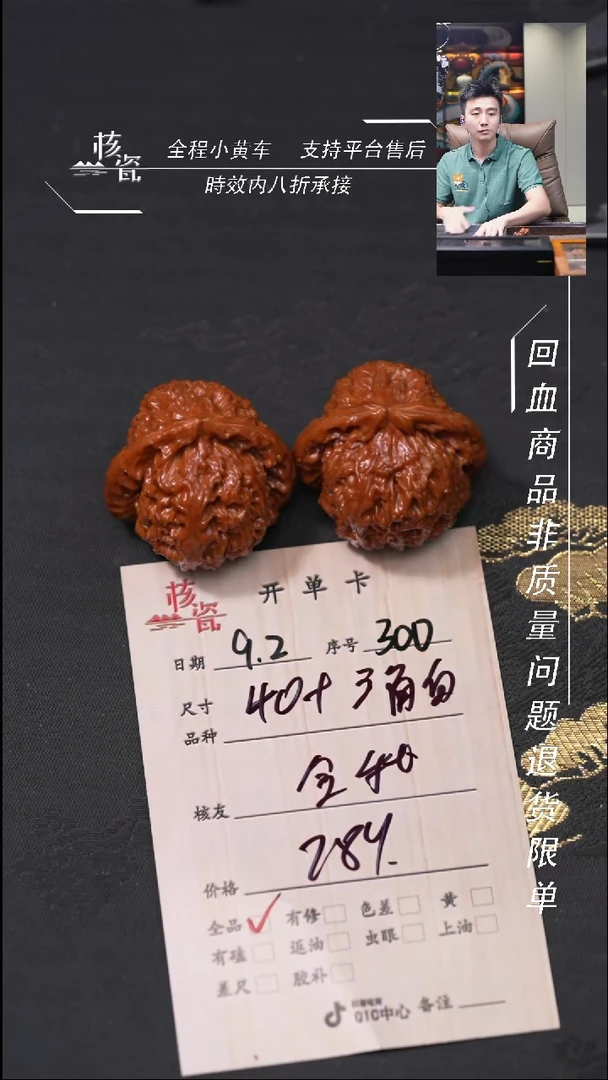 核瓷
全程小黄车 支持平台售后
時效内八折承接
回血商品非质量问题退货限单
核瓷
开单卡
日期 9.2 序号 300
尺寸 40+ 3角白
品种
核友
价格 284.
全品 ✓ 有修 色差 黄
有磕 返油 虫眼 上油
差尺 胶补
QIC中心 备注